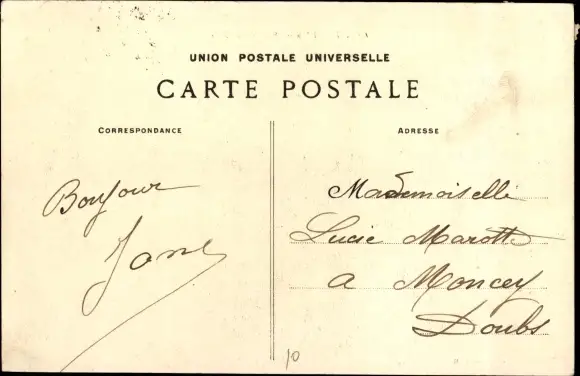 UNION POSTALE UNIVERSELLE
CARTE POSTALE
CORRESPONDANCE
Bonjour
Jane
ADRESSE
Mademoiselle
Lucie Marotte
a Moncey
Doubs
10